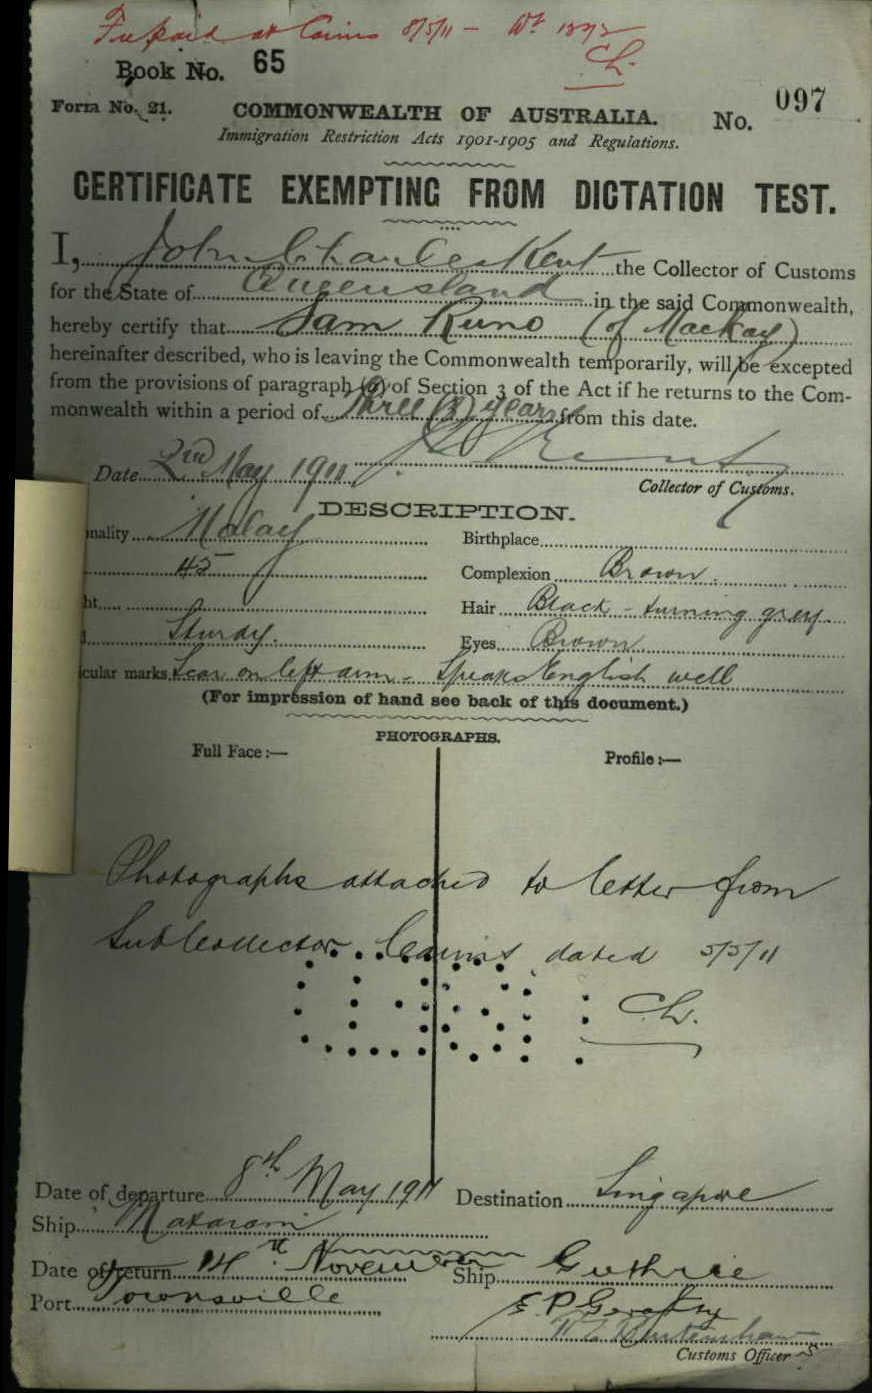 Prepaid at Cairns 8/5/11 -
CL.
Book No. 65
Form No. 21.
COMMONWEALTH OF AUSTRALIA.
No. 097
Immigration Restriction Acts 1901-1905 and Regulations.
CERTIFICATE EXEMPTING FROM DICTATION TEST.
I, John Charles Kent the Collector of Customs
for the State of Queensland in the said Commonwealth,
hereby certify that Sam Runo (of Mackay)
hereinafter described, who is leaving the Commonwealth temporarily, will be excepted
from the provisions of paragraph (a) of Section 3 of the Act if he returns to the Com-
monwealth within a period of Three (3) years from this date.
Date 2nd May 1911 J C Kent
Collector of Customs.
DESCRIPTION.
nality Malay Birthplace
45 Complexion Brown.
ht Hair Black - turning grey.
Sturdy. Eyes Brown
cular marks Scar on left arm - Speaks English well
(For impression of hand see back of this document.)
PHOTOGRAPHS.
Full Face :— Profile :—
Photographs attached to letter from
Sub Collector Cairns dated 5/5/11
CL.
Date of departure 8th May 1911 Destination Singapore
Ship Mataram
Date of return 14th November Ship Guthrie
Port Townsville
Customs Officer